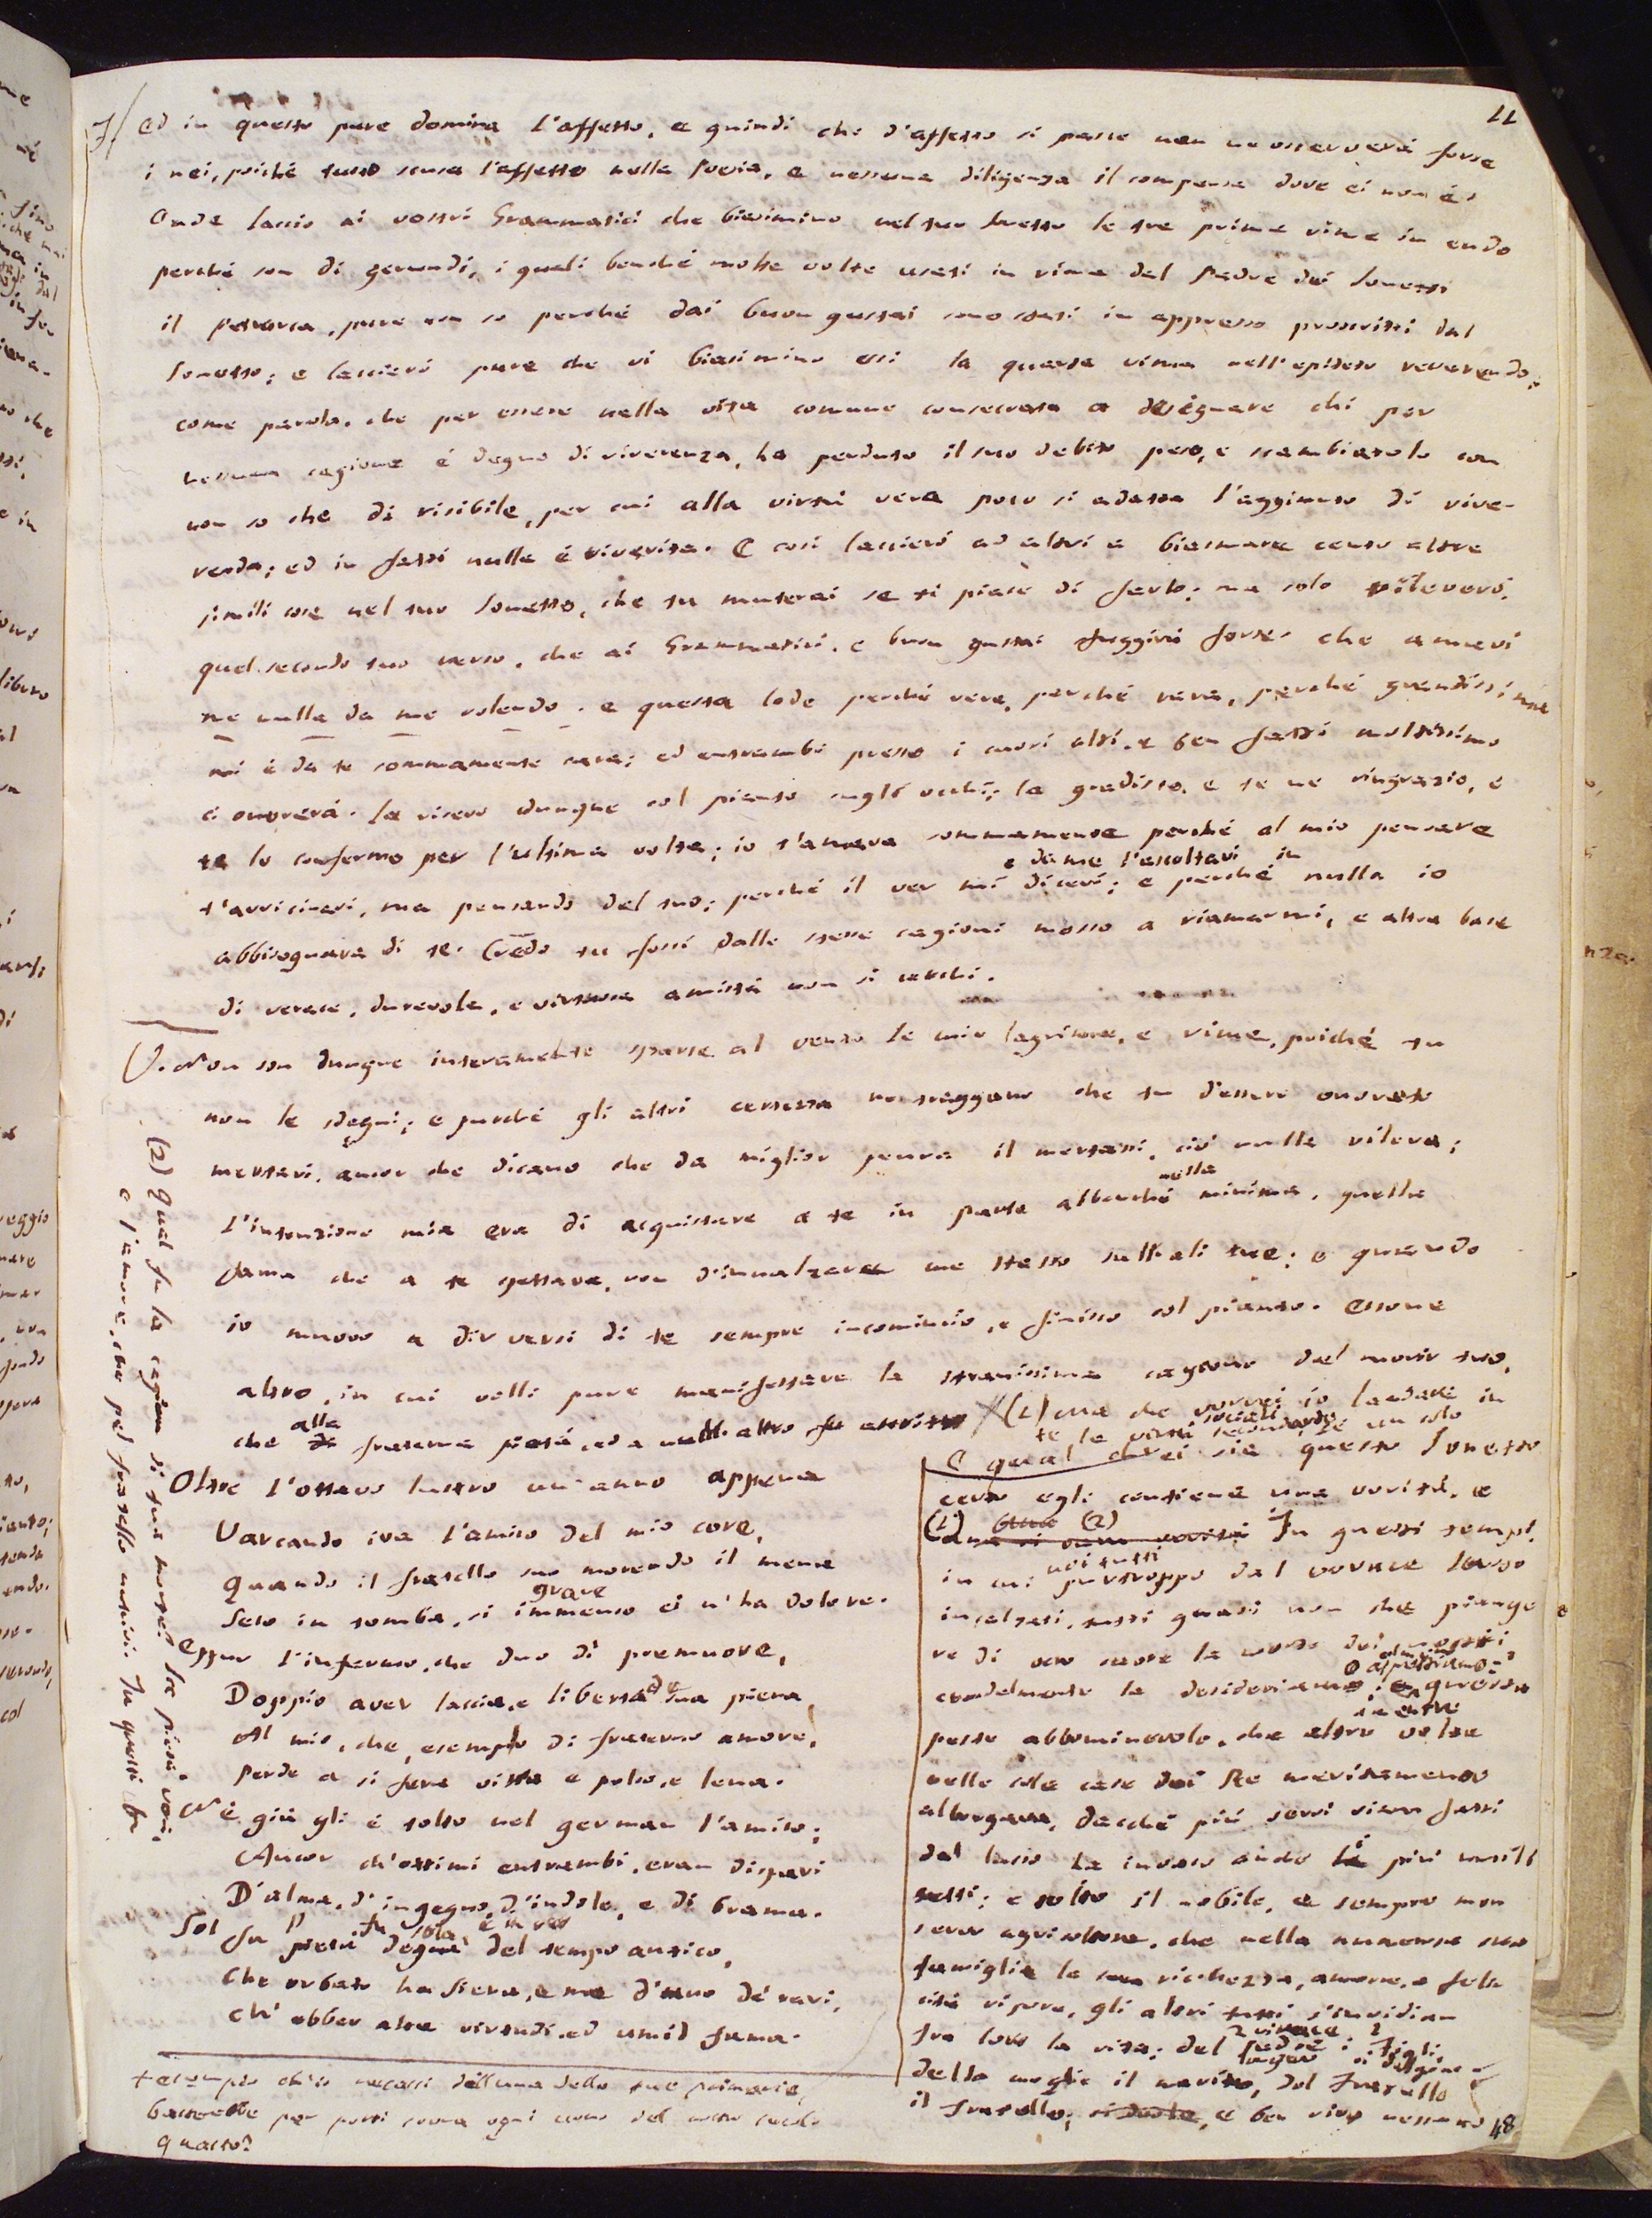 11
F/ Ed in questo pure domina l'affetto, e quindi chi d'affetto si pasce non ne osserverà forse
i nei, poiché tutto scusa l'affetto nella Poesia, e nessuna diligenza il compensa dove ei non è.
Onde lascio ai vostri Grammatici che biasimino nel tuo sonetto le tre prime rime in endo
perché son di gerundi, i quali benché molte volte usati in rima dal Padre dei sonetti
il Petrarca, pure non so perché dai buon gustai sono stati in appresso proscritti dal
sonetto; e lascierò pure che vi biasimino essi la quarta rima nell'epiteto reverendo;
come parola, che per essere nella vita comune consecrata a designare chi per
nessuna cagione è degno di riverenza, ha perduto il suo debito peso, e scambiatolo con
non so che di risibile, per cui alla virtù vera poco si adatta l'aggiunto di rive-
renda; ed in fatti nulla è riverita. E così lascierò ad altri a biasmare cento altre
simili cose nel tuo sonetto, che tu muterai se ti piace di farlo; ma solo rileverò.
quel secondo tuo verso, che ai Grammatici, e buon gustai sfuggirà forse. che amavi
me nulla da me volendo. e questa lode perché vera, perché rara, perché grandissima
mi è da te sommamente cara; ed entrambi presso i cuori alti, e ben fatti moltissimo
ci onorerà. La ricevo dunque col pianto sugli occhi; la gradisco, e te ne ringrazio, e
te lo confermo per l'ultima volta; io t'amava sommamente perché al mio pensare
e da me l'ascoltavi in
t'avvicinavi, ma pensando del tuo; perché il ver mi dicevi; e perché nulla io
abbisognava di te. Credo tu fossi dalle stesse cagioni mosso a riamarmi, e altra base
di verace, durevole, e virtuosa amistà non si cerchi.
V. Non son dunque interamente sparse al vento le mie lagrime, e rime, poiché tu
non le sdegni; e purché gli altri certezza ne traggano che tu d'essere onorato
meritavi, ancor che dicano che da miglior penna il meritassi, ciò nulla rileva;
nulla
L'intenzione mia era di acquistare a te in parte allorché minima, quella
fama che a te spettava, non d'innalzare me stesso sull'ali tue; e quando
io muovo a dir versi di te sempre incomincio, e finisco col pianto. Eccone
altro, in cui volli pure manifestare la stranissima cagione del morir tuo,
alla
che fraterna pietà, ed a null'altro fu ascritto (1) ma che vorrei io laudare in
te le virtù sociali secondarie un solo
Oltre l'ottavo lustro un'anno appena
Varcando iva l'amico del mio core,
Quando il fratello suo morendo il mena
grave
Seco in tomba, sì immenso ei n'ha dolore.
Eppur l'infermo, che duo dì premuore,
Doppio aver lascia, e libertade sua piena
Al mio, che, esempio di fraterno amore,
Perde a sì fera vista e polso, e lena.
Nè già gli è tolto nel german l'amico;
Ancor ch'ottimi entrambi, eran dispari
D'alma, d'ingegno, d'indole, e di brama.
Sol fu pietà degna del tempo antico,
Che orbato ha Siena, e me d'uno de' rari,
Ch'ebber alte virtudi, ed umil fama.
quarto?
E qual ei sia questo Sonetto
certo egli contiene una verità, e
(1) (2) In questi tempi
noi tutti
in cui purtroppo dal vorace lusso
incalzati, tutti quasi non che piange
re di vero cuore la morte dei nostri
o affrettiamo
crudelmente la desideriamo; questa
mentre
peste abbominevole, che altre volte
nelle sole case dei Re meritamente
albergava, dacché più servi siam fatti
dal lusso ha invaso anco i più umili
tetti; e tolto il nobile, e sempre non
servo agricoltore, che nella numerosa sua
famiglia la sua ricchezza, amore, e feli
cità ripone, gli altri tutti s'invidian
fra loro la vita; del padre i figli,
della moglie il marito, del fratello
il fratello; e ben vive nessuno
(2) Qual fu la cagion di tua morte? Se pietà vera.
e l'amore, che pel fratello nutrivi. In questi tr
48